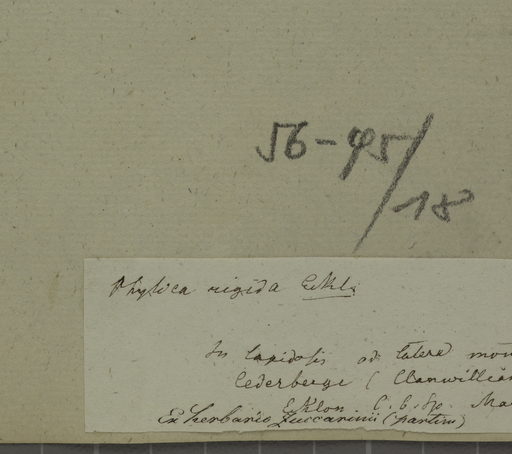 56-95/18
Phylica rigida Eckl.
In lapidosis ad latera mon
Cederberge (Clanwilliam
Eklon C. b. sp. Ma
Ex herbario Zuccarinii (partim)